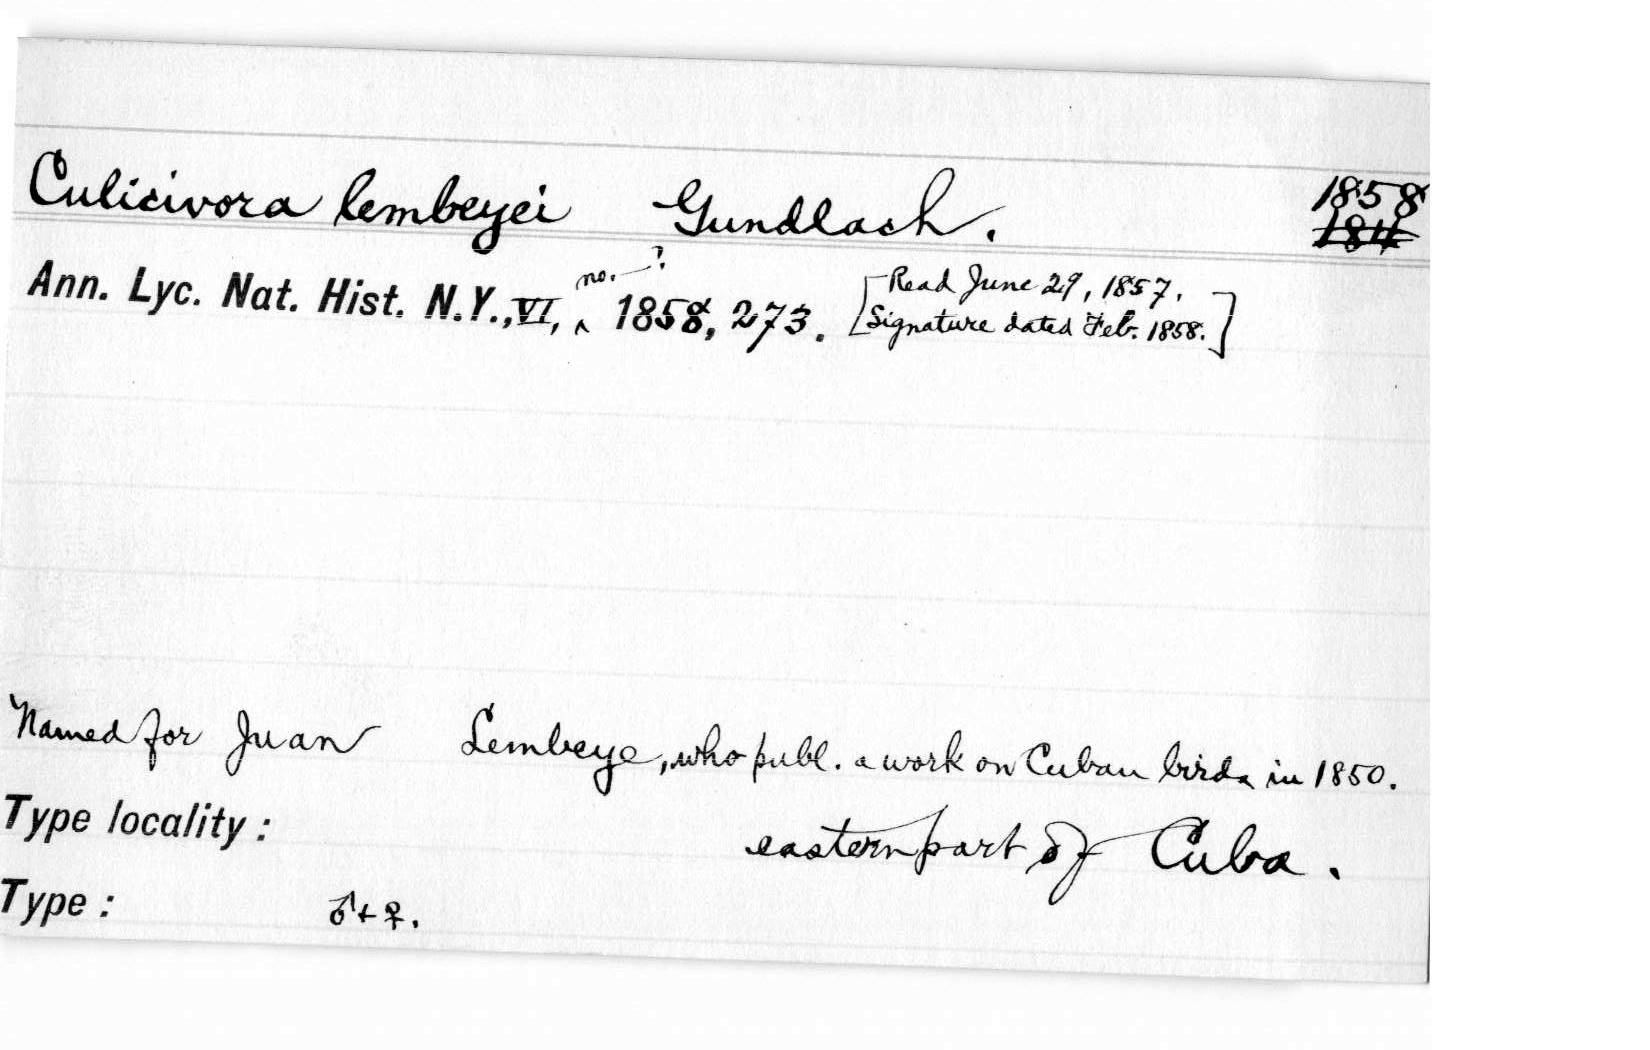 Culicivora lembeyei Gundlach. 1858
184
Ann. Lyc. Nat. Hist. N.Y., VI, ^ no. —? 1858, 273. [Read June 29, 1857.
Signature dated Feb. 1858.]
Named for Juan Lembeye, who publ. a work on Cuban birds in 1850.
Type locality: eastern part of Cuba.
Type: ♂ + ♀.